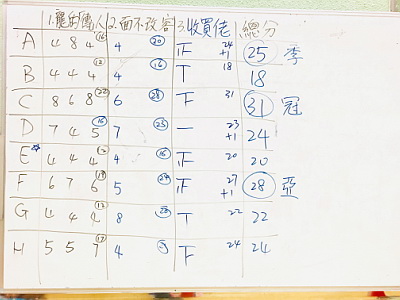 1. 龍的傳人 2. 面不改容 3. 收買佬 總分
A 4 8 4 16 4 20 正 24 +1 25 季
B 4 4 4 12 4 16 T 18 18
C 8 6 8 22 6 28 下 31 31 冠
D 7 4 5 16 7 23 一 23 +1 24
E 4 4 4 12 4 16 正 20 20
F 6 7 6 19 5 24 正 27 +1 28 亞
G 4 4 4 12 8 20 T 22 22
H 5 5 7 17 4 21 下 24 24